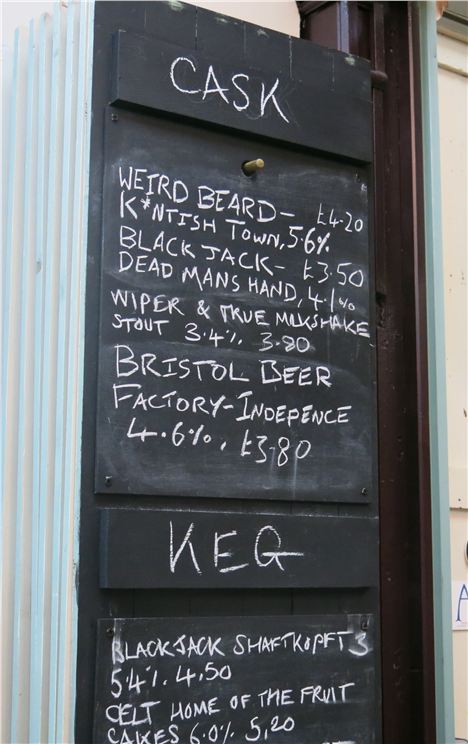 CASK
WEIRD BEARD - £4.20
K*NTISH TOWN, 5.6%
BLACK JACK - £3.50
DEAD MANS HAND, 4.1%
WIPER & TRUE MILKSHAKE
STOUT 3.4% 3.80
BRISTOL BEER
FACTORY - INDEPENCE
4.6%, £3.80
KEG
BLACKJACK SHAFTKOPFT 3
5.4%. 4.50
CELT HOME OF THE FRUIT
CAKES 6.0% 5,20